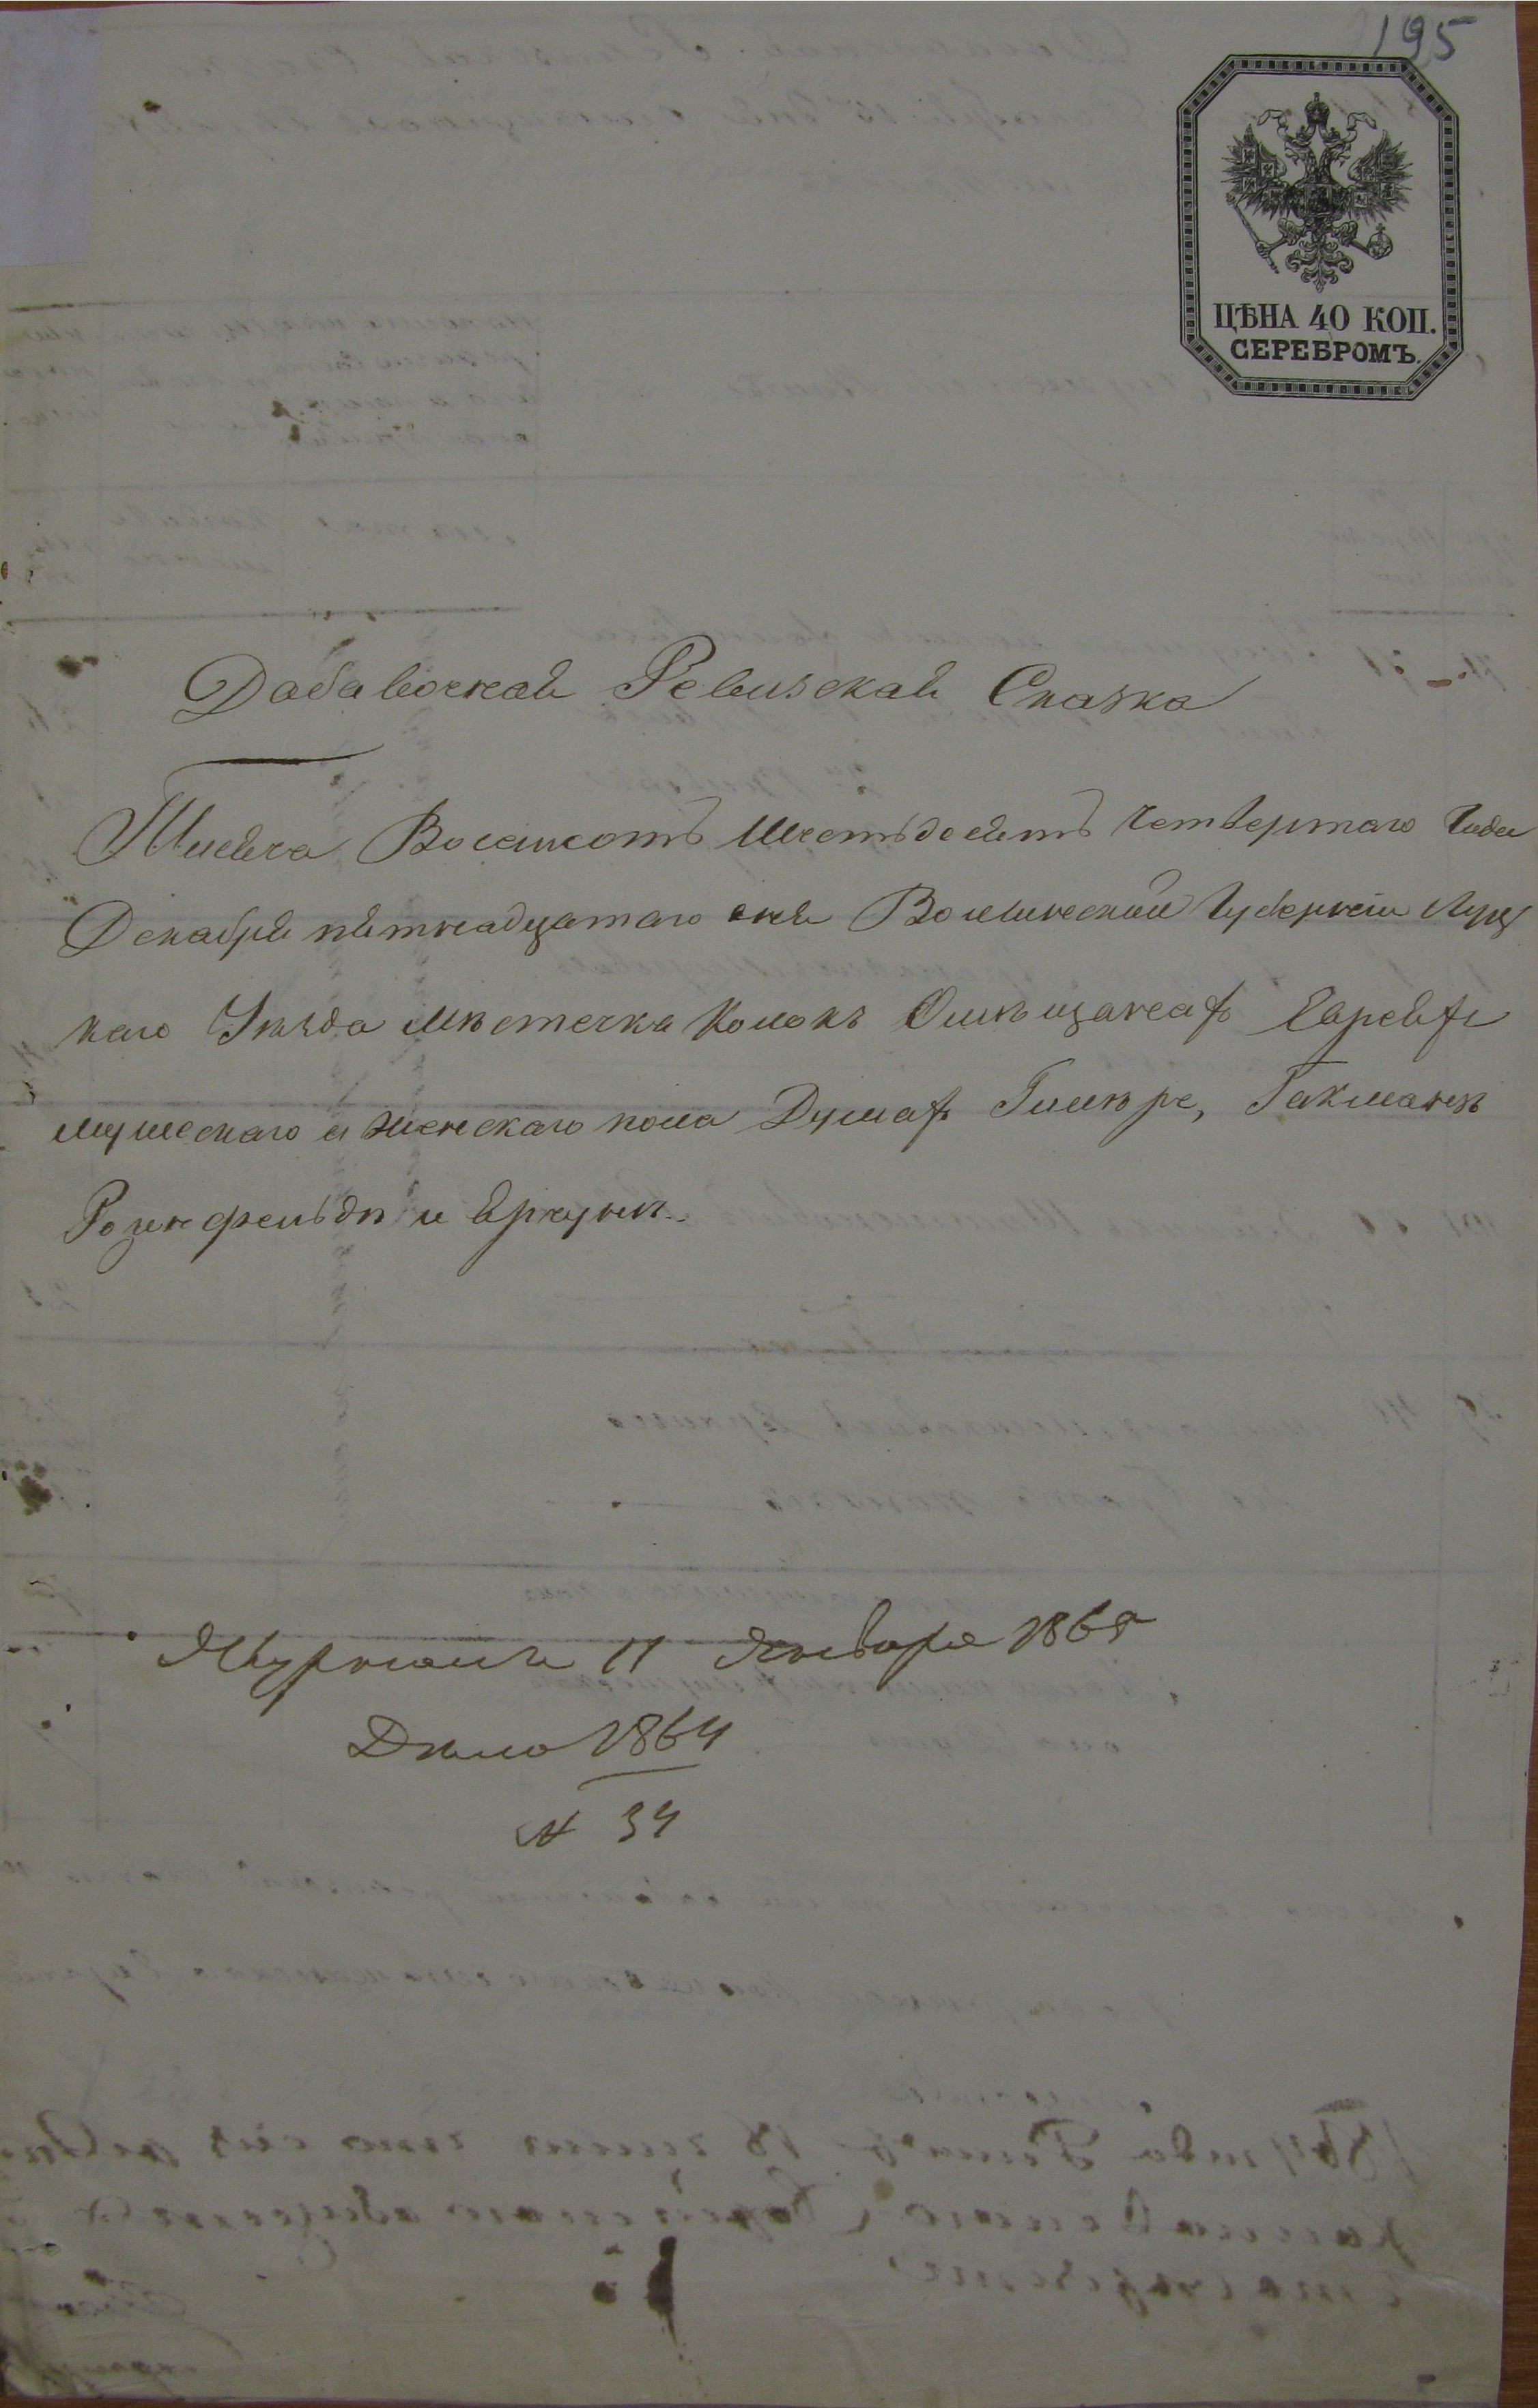 195
ЦѢНА 40 КОП.
СЕРЕБРОМЪ.
Дабавочная Ревизская Сказка
Тысяча Восемсотъ Шестьдесятъ четвертаго Года
Декабря пятнадцатаго дня Волынской Губерніи Луц
каго Уѣзда мѣстечка Колокъ О мѣщанахъ Евреяхъ
мужескаго и женскаго пола Душахъ Гимпре, Гакманѣ
Розенфельдѣ и
11 Января 1865
Дѣло 1864
№ 34